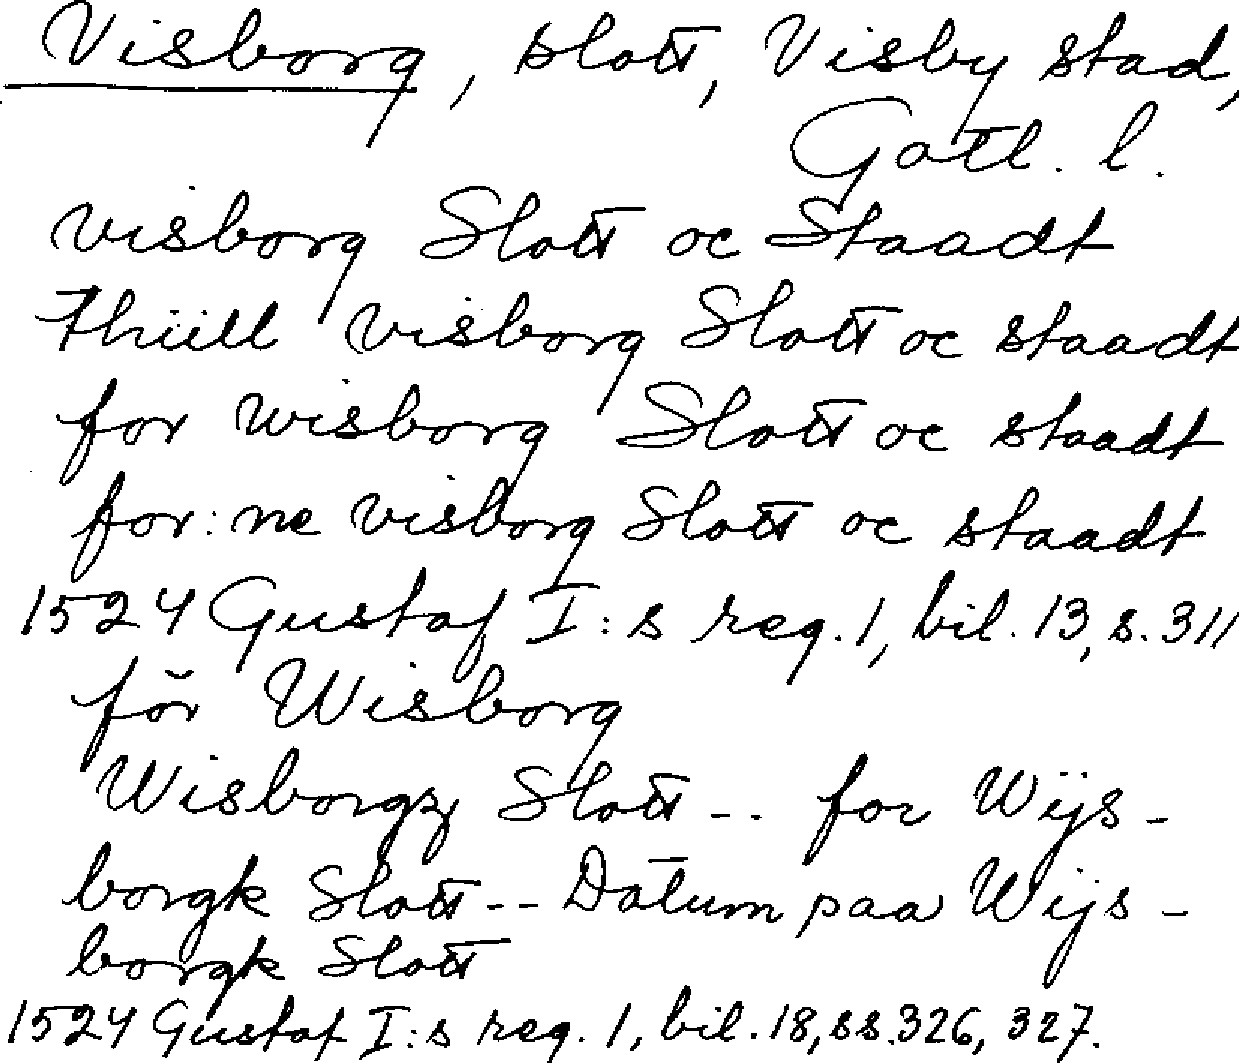 Visborg, slott, Visby stad,
Gotl. l.
visborg Slott oc Staadt
Thiill visborg Slott oc staadt
for wisborg Slott oc staadt
for: ne visborg Slott oc staadt
1524 Gustaf I:s reg. 1, bil. 13, s. 311
för Wisborg
Wisborgz Slott -- for Wijs-
borgk Slott -- Datum paa Wijs-
borgk Slott
1524 Gustaf I:s reg. 1, bil. 18, ss. 326, 327.